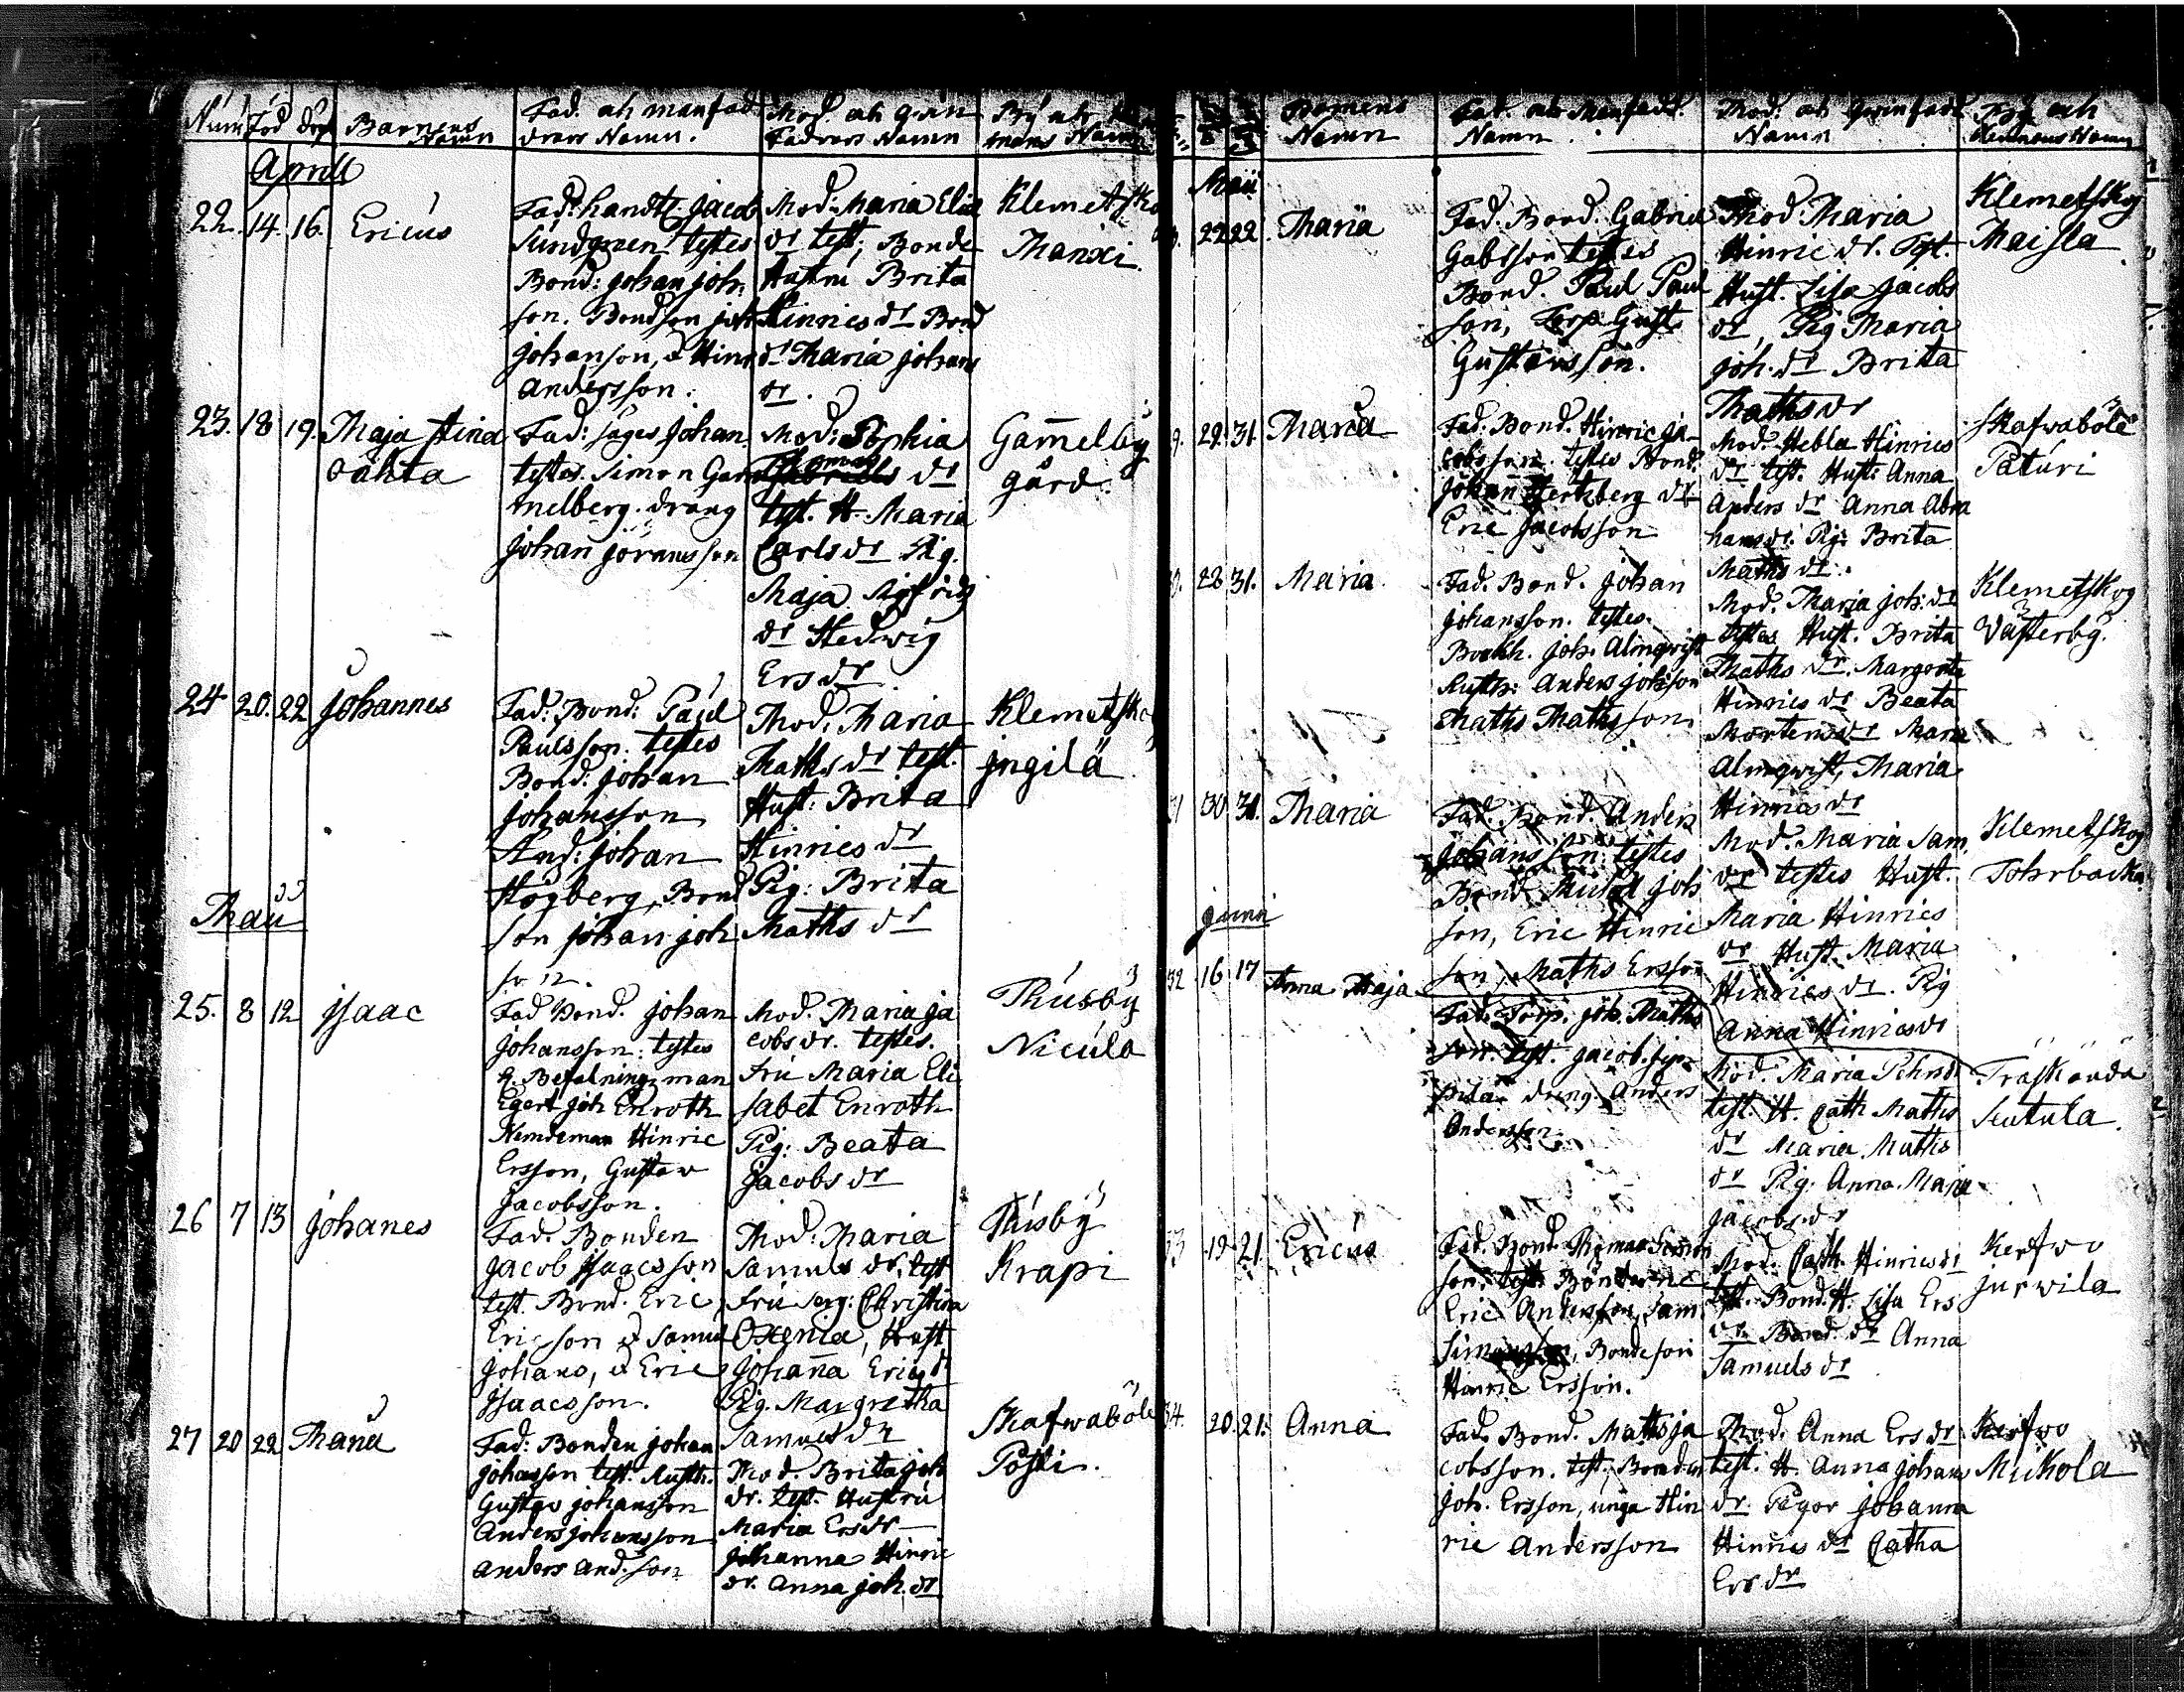 Num Föd döp Barnens Namn
Fad. ach manfad
drars Namn.
Mod. ach qvin
Fadrars Namn
By ach
mans Namn
Aprill
22. 14. 16. Ericus
Fad: handtl Jacob
Sundgreen testes
Bond: Johan Joh.
son. Bondson Joh
Johanson, & Hinr
Andersson.
Mod: Maria Elia
dr test, Bonde
Hustru Brita
Hinrics dr Bond
dr Maria Johans
dr.
Klemetsko
Manxi.
23. 18 19. Maja Stina
Fad: Johan
testes. Simon Gam
melberg. dräng
Johan Göransson
Mod: Sophia
Thomas dr
test. H. Maria
Carls dr Pig.
Maja Sigfrids
dr Hedwig
Ers dr
Gamelby
gård.
24 20. 22 Johannes
Fad: Bond: Paul
Paulsson. testes
Bond: Johan
Johansson
Johan
Högberg, Bond
son Johan Joh
son.
Mod: Maria
Maths dr test.
Hust: Brita
Hinrics dr
Pig: Brita
Maths dr
Klemetsko
Jngilä
Maii
25. 8 12 Jsaac
Fad Bond. Johan
Johansson: testes
Befalningzman
Egert Joh Enroth
Nemdeman Hinric
Ersson, Gustav
Jacobsson.
Mod. Maria Ja
cobs dr. testes.
Fru Maria Eli
sabet Enroth
Pig: Beata
Jacobs dr
Thusby
Nicula
26 7 13 Johanes
Fad. Bonden
Jacob Jsaacsson
test. Bond. Eric
Ericsson & Samuel
Johans, & Eric
Jsaacsson.
Mod: Maria
Samuls dr, test
Fru Serg: Christina
Oxenia, Hust
Johana Erics d
Pig. Margretha
Samuels dr
Thusby
Krapi
27 20 22 Maria
Fad: Bonden Johan
Johansson test. Rusth.
Gustav Johansson
Anders Johansson
Anders And. son
Mod. Brita Joh
dr. test. Hustru
Maria Ers dr
Johanna Hinric
dr. Anna Joh. dr
Skafwaböle
Pösti.
Barnens
Namn
Fad. ach Manfadd.
Namn.
Mod. ach Qvinfad
Namn
By ach
Hemmans Namn
Maii
22 22. Maria
Fad. Bond. Gabriel
Gabsson testes
Bond. Paul Paul
son, Torp: Gust.
Gustavsson.
Mod: Maria
Hinric dr. Test.
Hust. Lisa Jacobs
dr, Pig Maria
Joh. dr Brita
Maths dr
Klemetskog
Maisla
29. 31. Maria
Fad. Bond. Hinric Ja-
cobsson testes Bond.
Johan Hertzberg
Eric Jacobsson
Mod. Hebla Hinrics
dr test. Hust: Anna
Anders dr Anna Abra
hams dr. Pig: Brita
Maths dr.
Skafwaböle
Paturi
28 31. Maria.
Fad. Bond. Johan
Johansson. testes.
Bockh. Joh. Almqwist
Rusth: Anders Johsson
Maths Mathsson
Mod. Maria Joh: dr
testes Hust. Brita
Maths dr. Margreta
Hinrics dr Beata
Mortens dr Maria
Almqwist, Maria
Hinrics dr
Klemetskog
Västerby.
31 30 31. Maria
Fad. Bond. Anders
Johansson: testes
Bond. Joh
son, Eric Hinric
son, Maths Ersson
Mod. Maria Sam.
dr testes Hust.
Maria Hinrics
dr Hust. Maria
Hinrics dr. Pig
Anna Hinrics dr
Klemetskog
Tohrbacka
Junii
32 16 17 Anna Maja
Fad. Torp. Joh. Maths
son. test. Jacob.
dreng. Anders
Andersson.
Mod. Maria
test. H. Cath Maths
dr Maria Maths
dr Pig. Anna Maja
Jacobs dr
Träskända
Skutula.
33 19 21 Ericus
Fad. Bond. Thomas Simon
son. test. Bönderne
Eric Andersson, Sam.
Simonsson, Bondeson
Hinric Ersson.
Mod. Cath. Hinrics dr
test. Bond. H. Lisa Ers
dr Bond. dr Anna
Samuels dr
Kerfwo
Jurwila
34. 20. 21. Anna
Fad. Bond. Maths Ja
cobsson. test. Bonden
Joh. Ersson, unga Hin
ric Andersson
Mod. Anna Ers dr
test. H. Anna Johans
dr. Pigor Johanna
Hinrics dr Catha
Ers dr
Kerfwo
Mikola